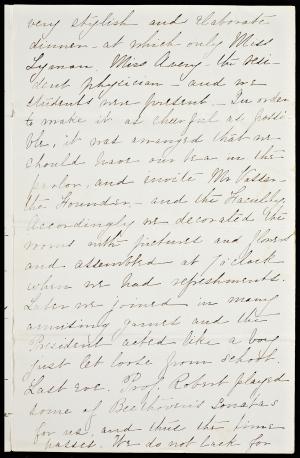 very stylish and elaborate
dinner - at which only Miss
Lyman, Miss Avery - the resi-
dent physician - and we
students were present. - In order
to make it as cheerful as possi-
ble, it was arranged that we
should have our tea in the
parlor, and invite Mr. Vassar -
the Founder, - and the Faculty.
Accordingly we decorated the
rooms with pictures and flowers
and assembled at 7 o'clock
when we had refreshments.
Later we joined in many
amusing games and the
President acted like a boy
just let loose from school.
Last eve. Prof. Robert played
some of Beethoven's Sonatas
for us, and thus the time
passes. We do not lack for